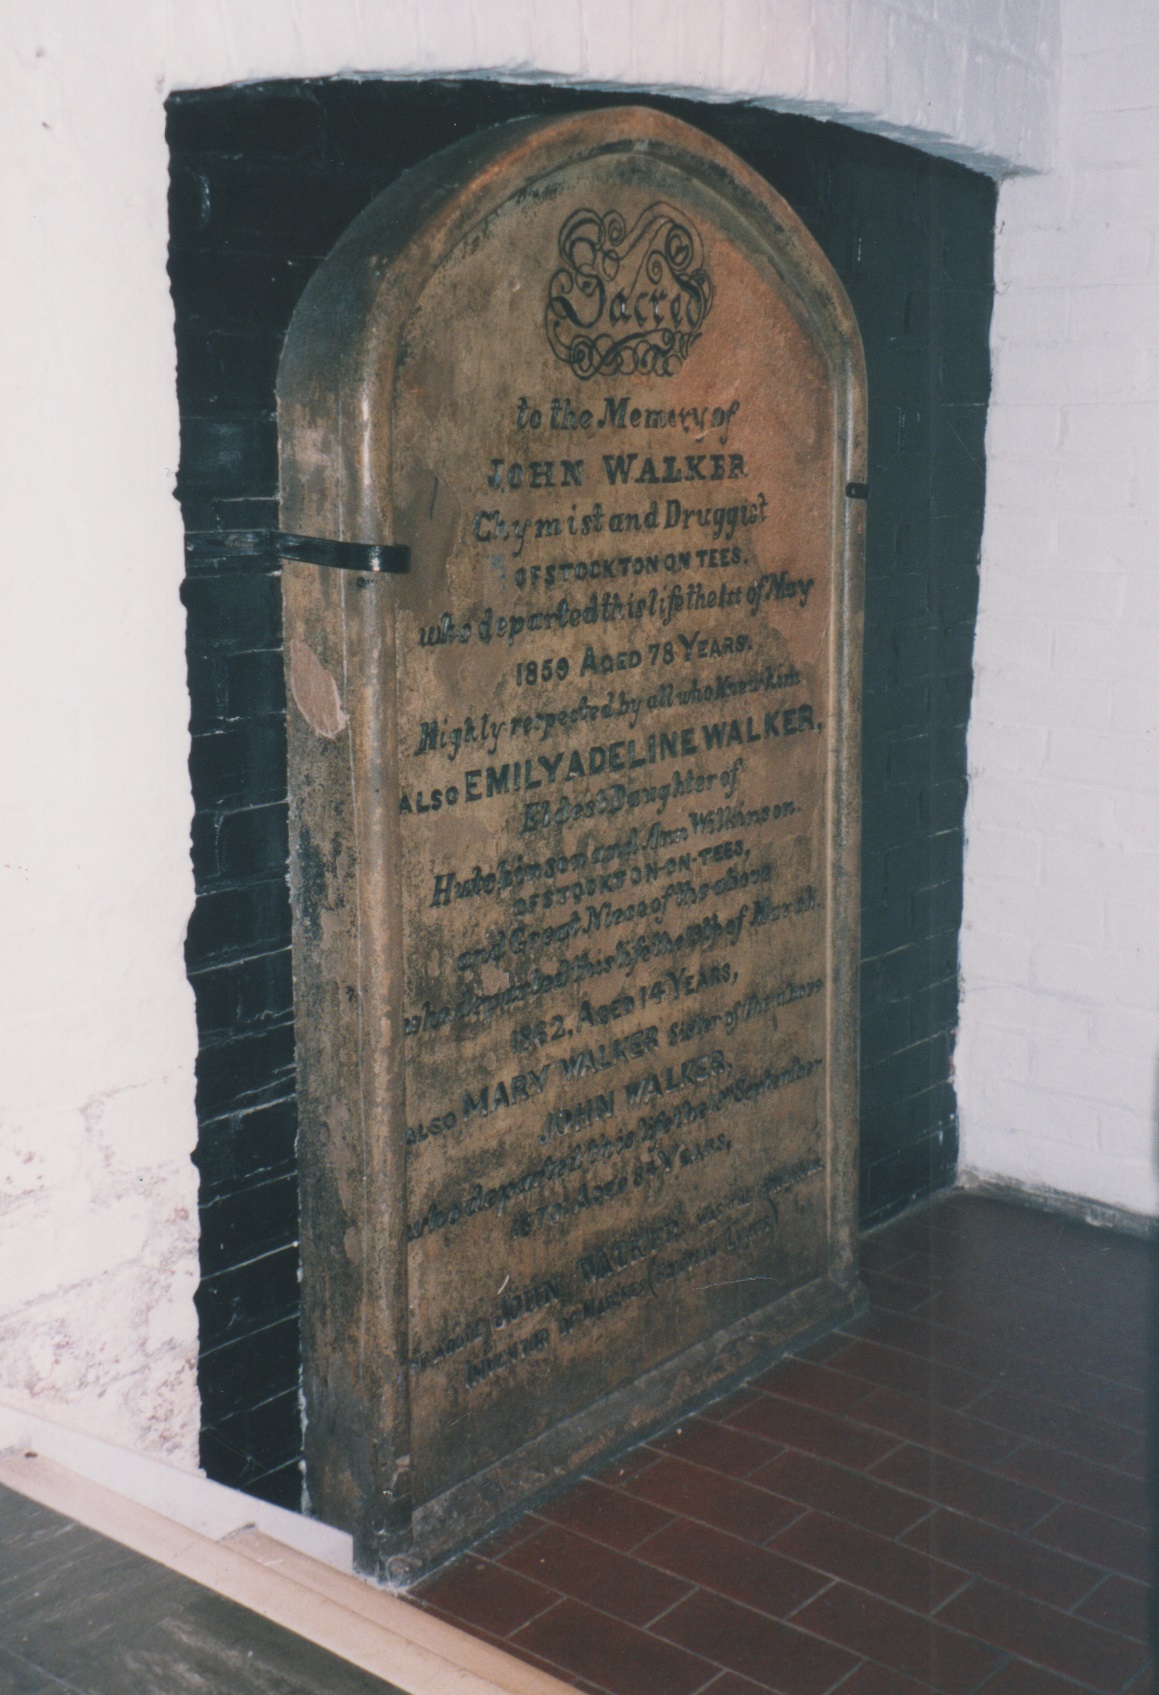 Sacred
to the Memory of
JOHN WALKER
Chymist and Druggist
OF STOCKTON ON TEES.
who departed this life the 1st of May
1859 AGED 78 YEARS.
Highly respected by all who knew him
ALSO EMILY ADELINE WALKER,
Eldest Daughter of
Hutchinson and Ann Wilkinson.
OF STOCKTON-ON-TEES,
and Great Niece of the above
who departed this life the of March.
1862, AGED 14 YEARS,
ALSO MARY WALKER sister of the above
JOHN WALKER,
who departed this life the September
AGED YEARS,
JOHN WALKER WAS THE
INVENTOR OF MATCHES